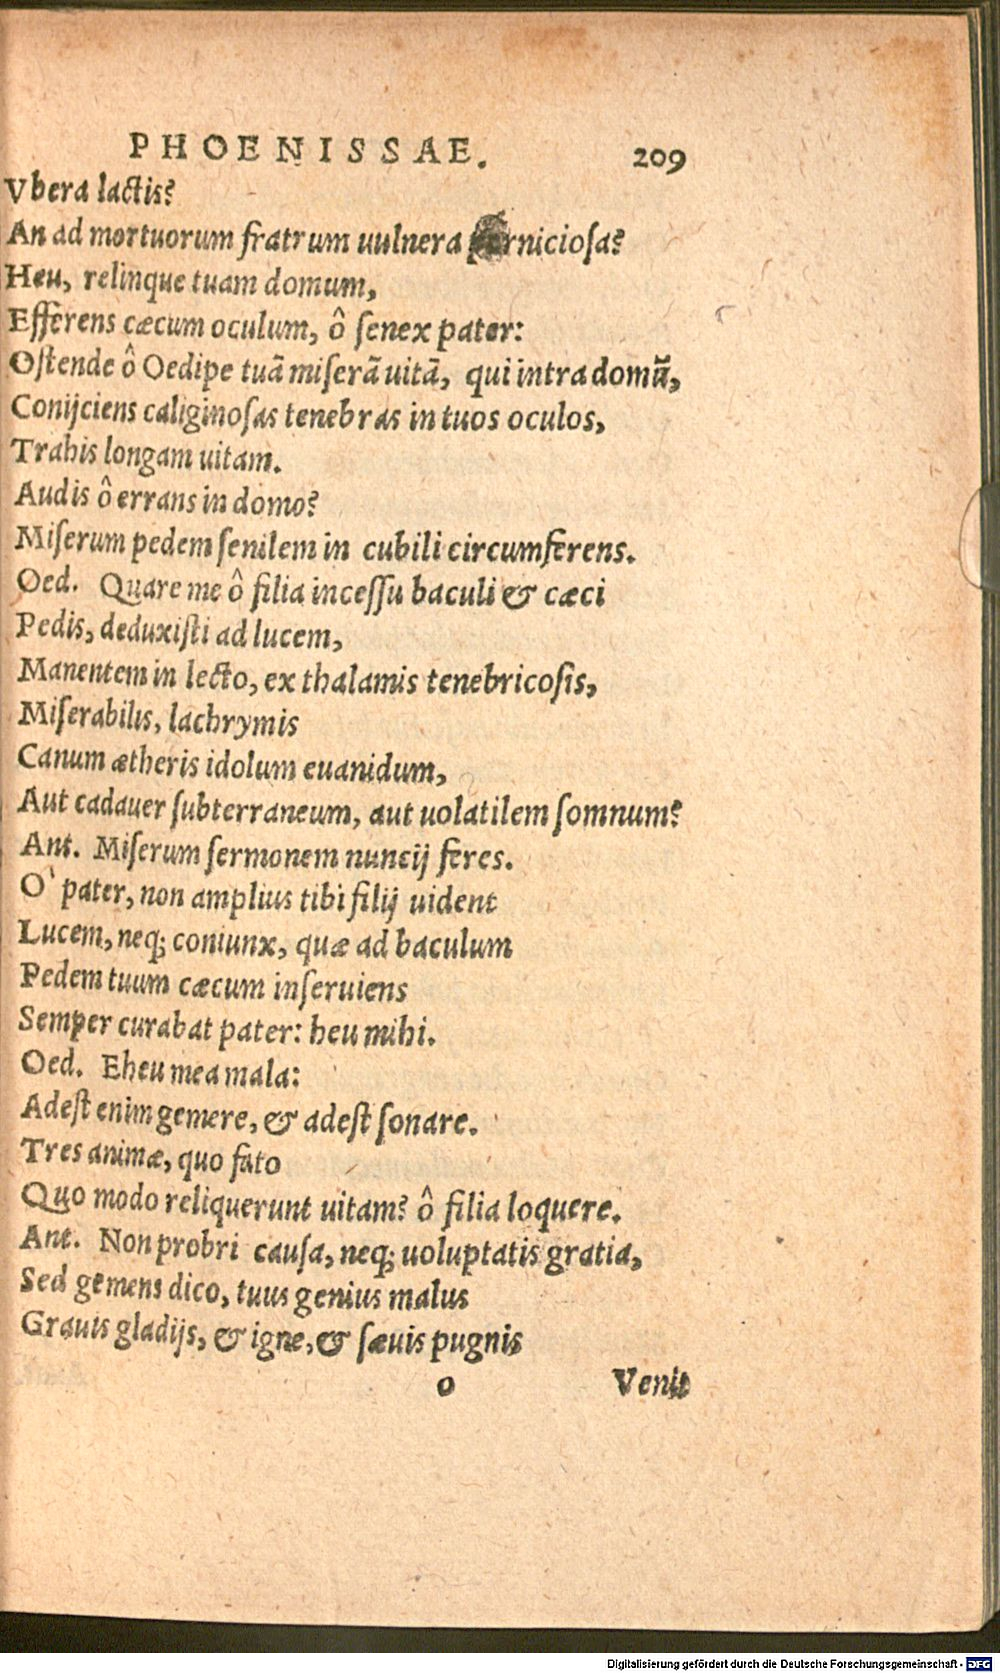 PHOENISSAE. 209
Vbera lactis?
An ad mortuorum fratrum uulnera perniciosa?
Heu, relinque tuam domum,
Efferens cæcum oculum, ô senex pater:
Ostende ô Oedipe tuā miserā uitā, qui intra domū,
Conijciens caliginosas tenebras in tuos oculos,
Trahis longam uitam.
Audis ô errans in domo?
Miserum pedem senilem in cubili circumferens.
Oed. Quare me ô filia incessu baculi & cæci
Pedis, deduxisti ad lucem,
Manentem in lecto, ex thalamis tenebricosis,
Miserabilis, lachrymis
Canum ætheris idolum euanidum,
Aut cadauer subterraneum, aut uolatilem somnum?
Ant. Miserum sermonem nuncij feres.
O' pater, non amplius tibi filij uident
Lucem, neq; coniunx, quæ ad baculum
Pedem tuum cæcum inseruiens
Semper curabat pater: heu mihi.
Oed. Eheu mea mala:
Adest enim gemere, & adest sonare.
Tres animæ, quo fato
Quo modo reliquerunt uitam? ô filia loquere.
Ant. Non probri causa, neq; uoluptatis gratia,
Sed gemens dico, tuus genius malus
Grauis gladijs, & igne, & sæuis pugnis
o Venit
Digitalisierung gefördert durch die Deutsche Forschungsgemeinschaft - DFG